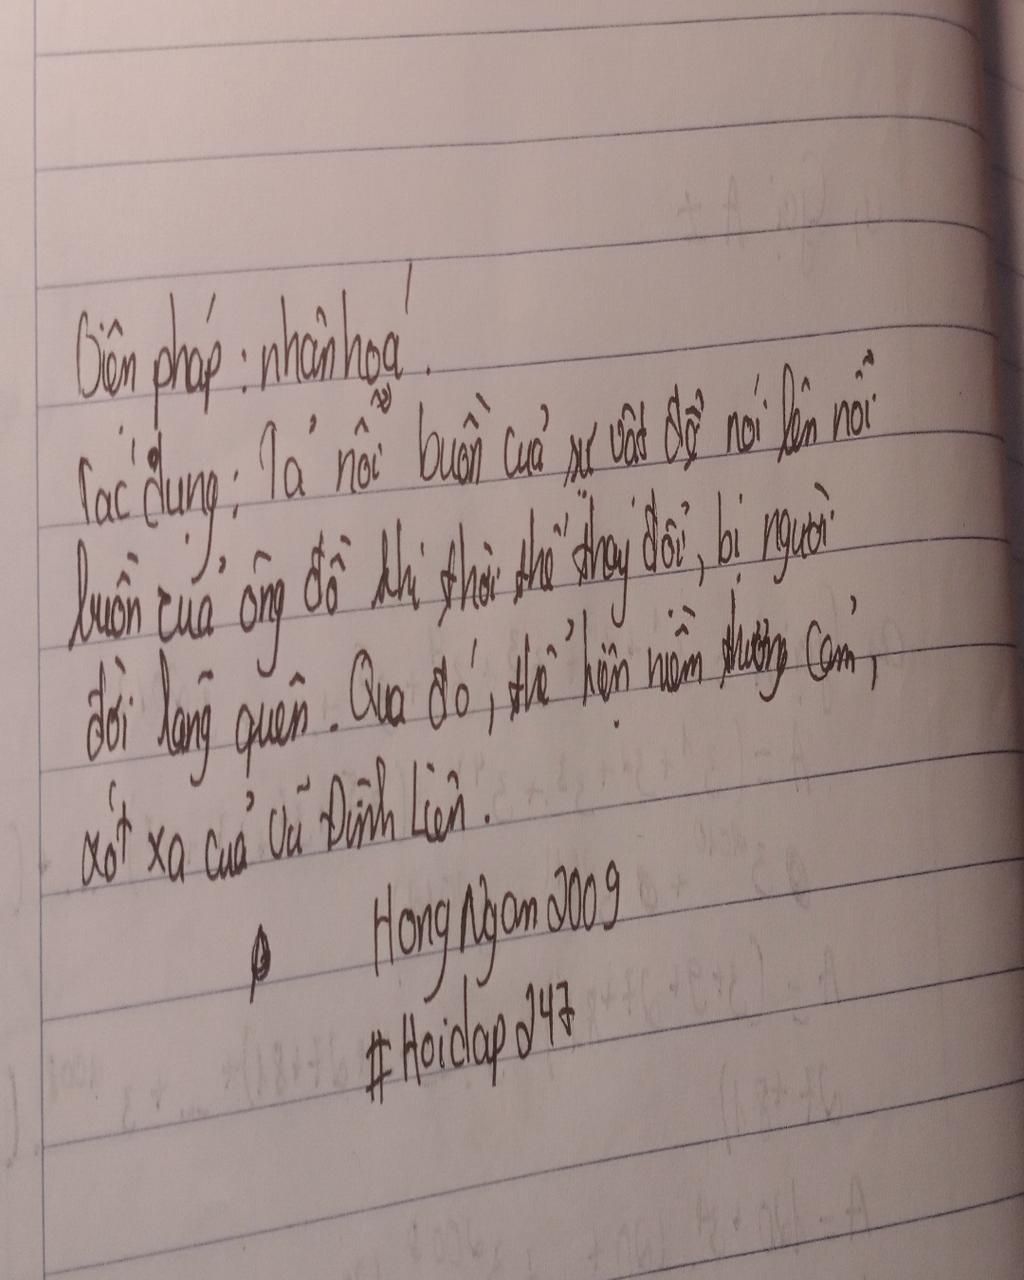 Biện pháp: nhân hoá.
Tác dụng: Tả nỗi buồn của sự vật để nói lên nỗi
buồn của ông đồ khi thời thế thay đổi, bị người
đời lãng quên. Qua đó, thể hiện niềm thương cảm,
xót xa của Vũ Đình Liên.
HongNgan2009
#Hoidap247